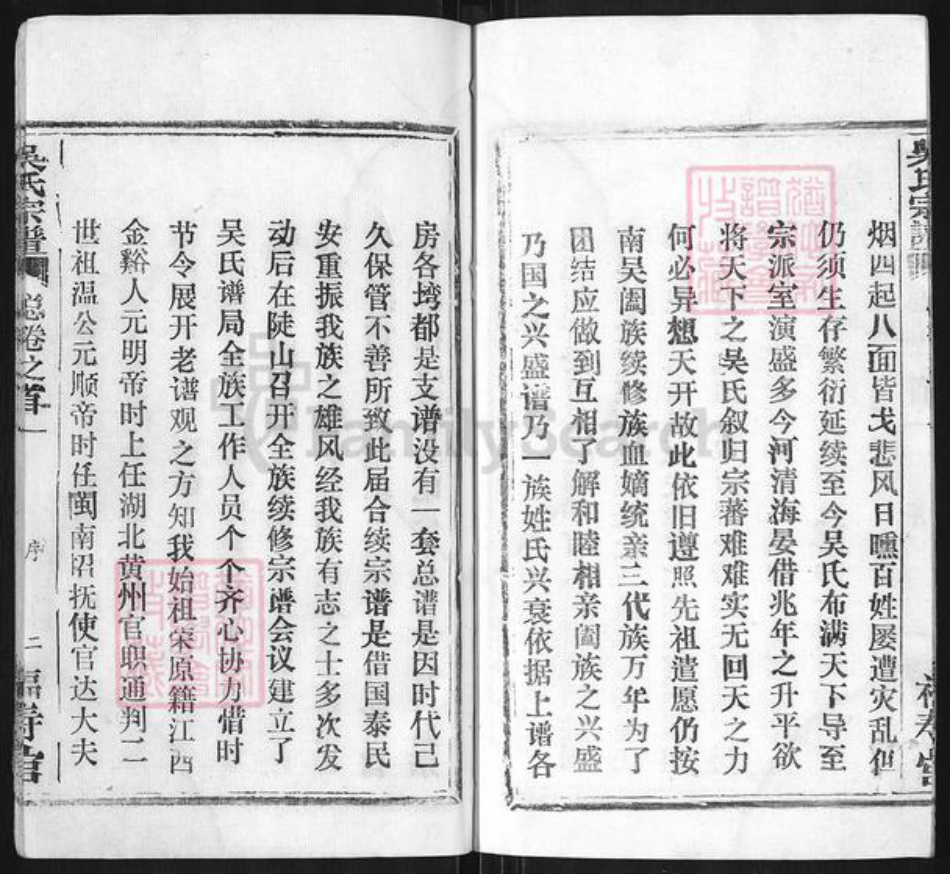 烟四起八面皆戈悲风日曛百姓屡遭灾乱但
仍须生存繁衍延续至今吴氏布满天下导至
宗派室演盛多今河清海晏借兆年之升平欲
将天下之吴氏叙归宗蕃难难实无回天之力
何必异想天开故此依旧遵照先祖遣愿仍按
南吴阖族续修族血嫡统亲三代族万年为了
团结应做到互相了解和睦相亲阖族之兴盛
乃国之兴盛谱乃一族姓氏兴衰依据上谱各
房各塆都是支谱没有一套总谱是因时代己
久保管不善所致此届合续宗谱是借国泰民
安重振我族之雄风经我族有志之士多次发
动后在陡山召开全族续修宗谱会议建立了
吴氏谱局全族工作人员个个齐心协力借时
节令展开老谱观之方知我始祖荣原籍江西
金谿人元明帝时上任湖北黄州官职通判二
世祖温公元顺帝时任闽南招抚使官达大夫
吳氏宗譜 卷之首 序 二
FamilySearch